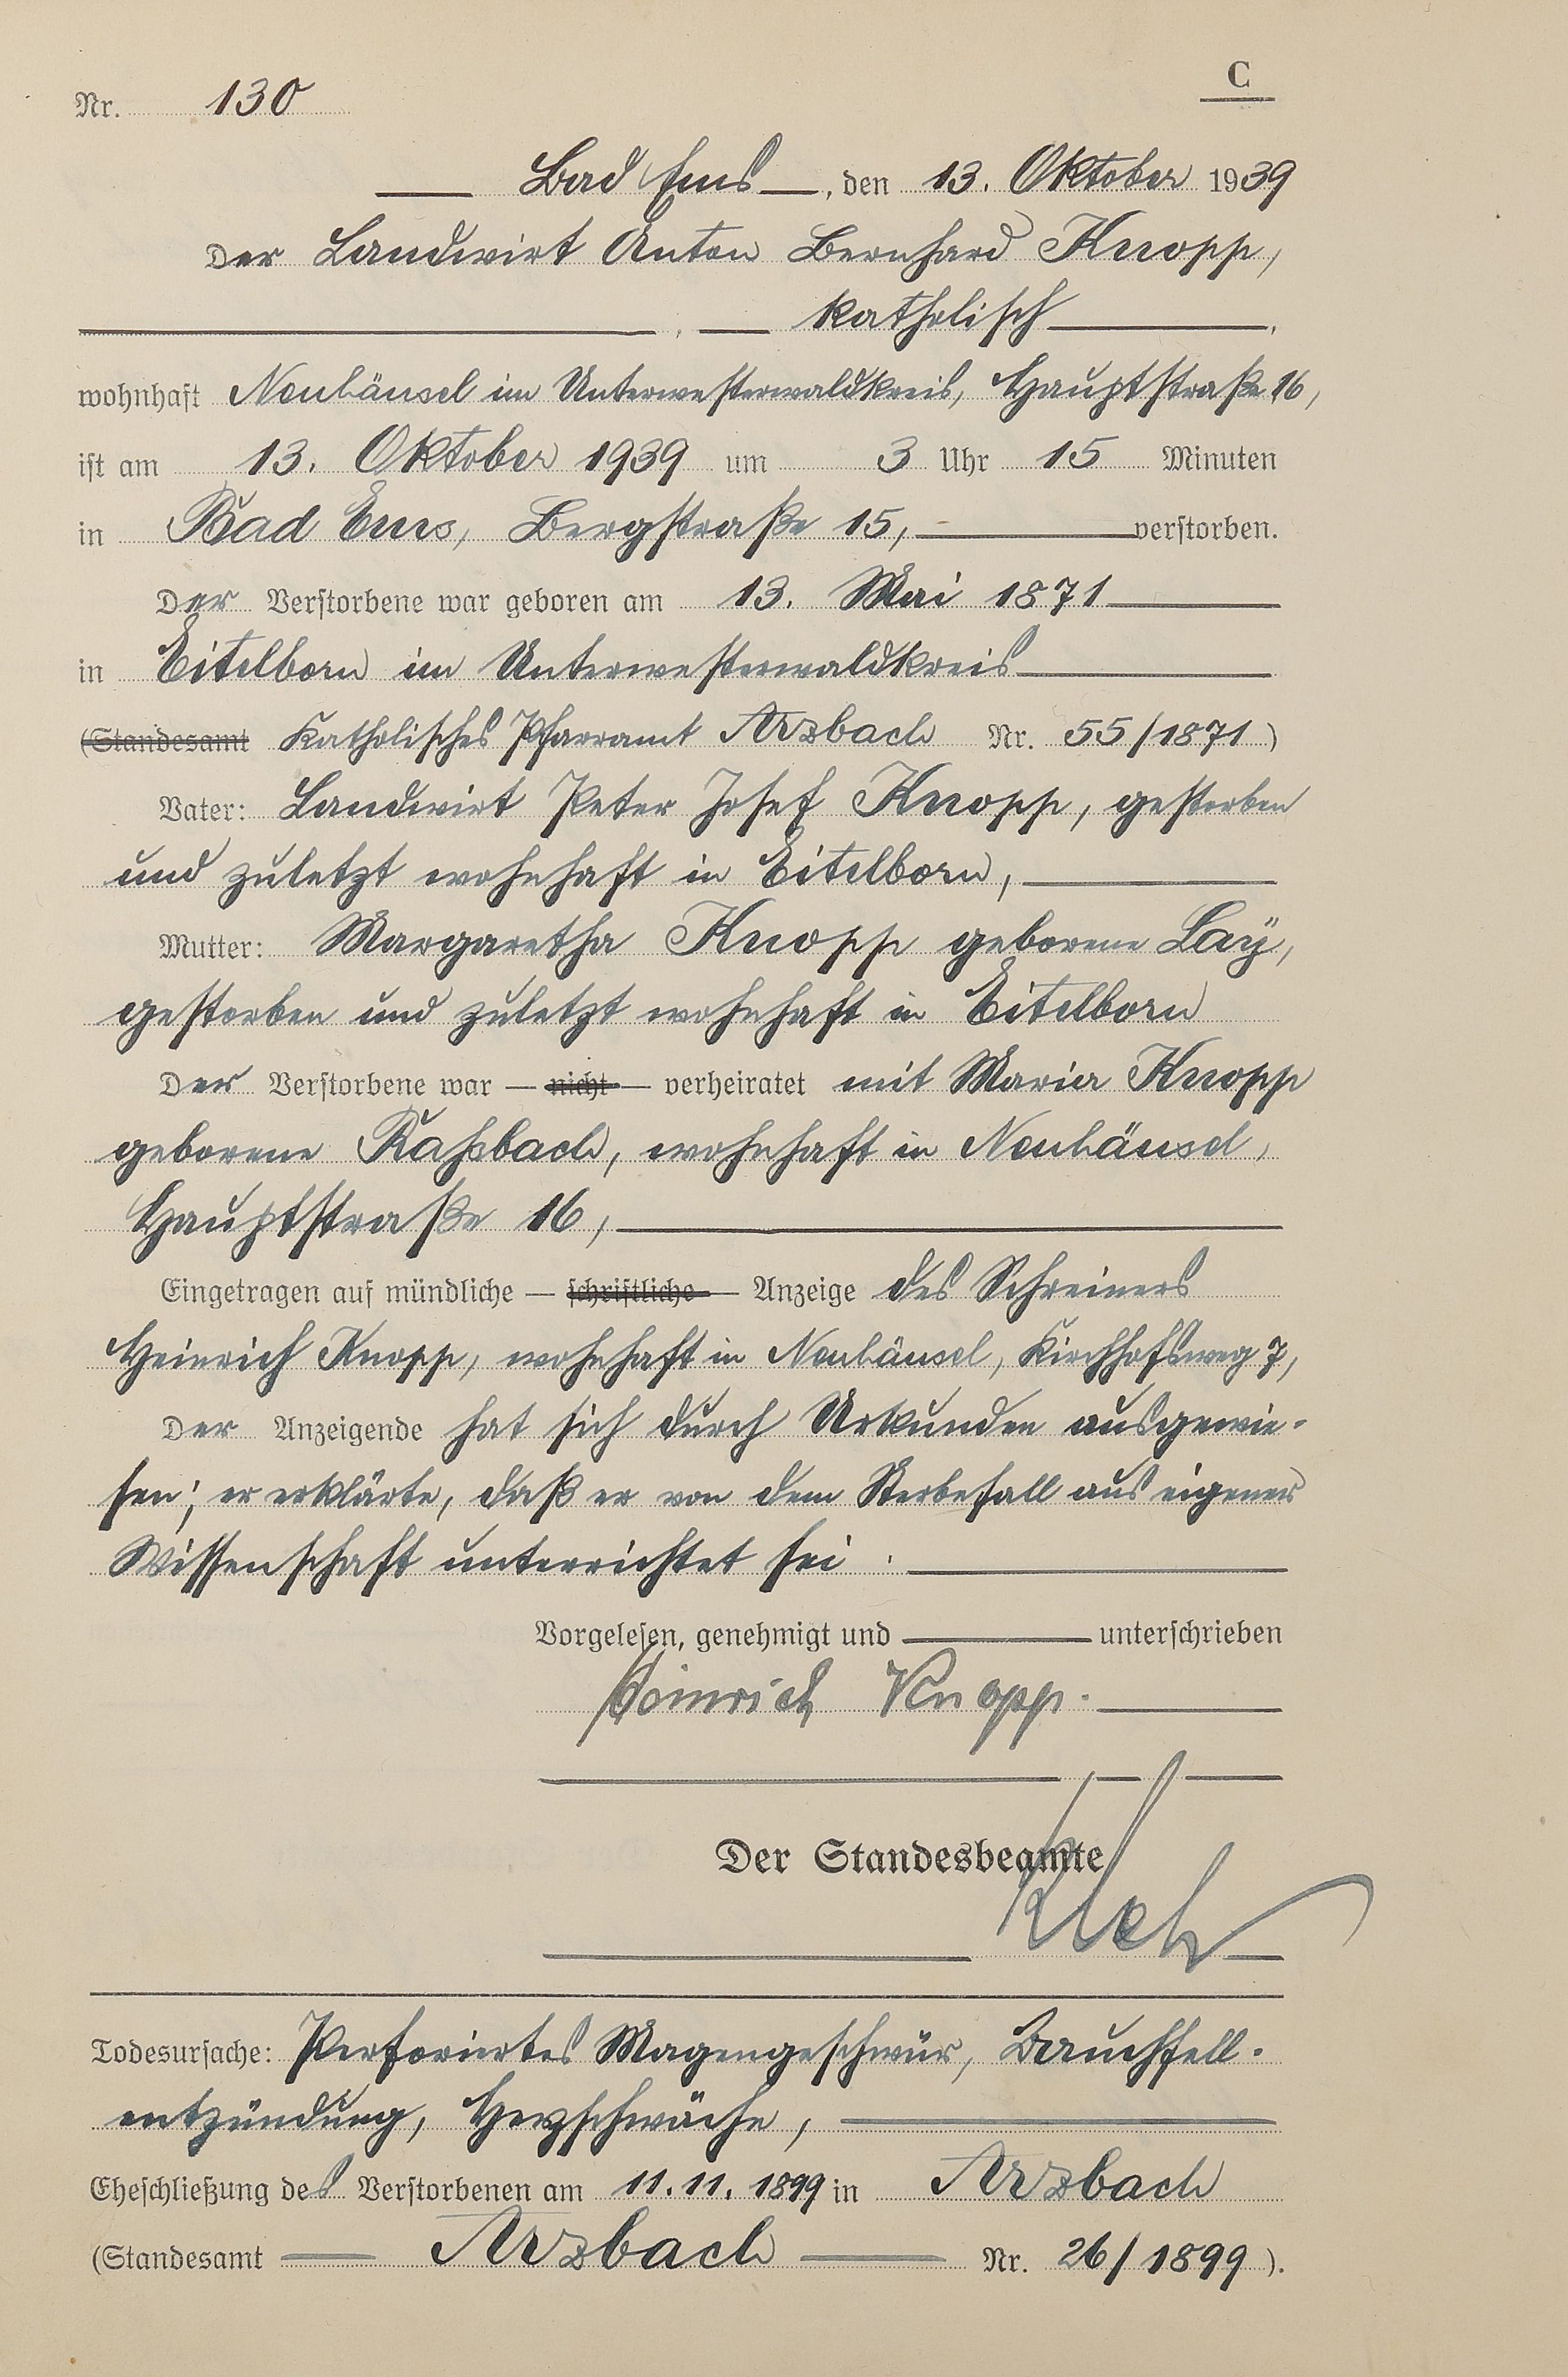 C
Nr. 130
Bad Ems, den 13. Oktober 1939
Der Landwirt Anton Bernhard Knopp,
katholisch,
wohnhaft Neuhäusel im Unterwesterwaldkreis, Hauptstraße 16,
ist am 13. Oktober 1939 um 3 Uhr 15 Minuten
in Bad Ems, Bergstraße 15, verstorben.
Der Verstorbene war geboren am 13. Mai 1871
in Eitelborn im Unterwesterwaldkreis
(Standesamt Katholisches Pfarramt Arzbach Nr. 55/1871)
Vater: Landwirt Peter Josef Knopp, gestorben
und zuletzt wohnhaft in Eitelborn,
Mutter: Margaretha Knopp geborene Laÿ,
gestorben und zuletzt wohnhaft in Eitelborn
Der Verstorbene war — nicht — verheiratet mit Maria Knopp
geborene, wohnhaft in Neuhäusel,
Hauptstraße 16,
Eingetragen auf mündliche — schriftliche — Anzeige des Schreiners
Heinrich Knopp, wohnhaft in Neuhäusel, Kirchhofsweg 7,
Der Anzeigende hat sich durch Urkunden ausgewie-
sen; er erklärte, daß er von dem Sterbefall aus eigener
Wissenschaft unterrichtet sei.
Vorgelesen, genehmigt und unterschrieben
Heinrich Knopp.
Der Standesbeamte
Todesursache: Perforiertes Magengeschwür, Bauchfell-
entzündung, Herzschwäche,
Eheschließung des Verstorbenen am 11.11.1899 in Arzbach
(Standesamt Arzbach Nr. 26/1899).